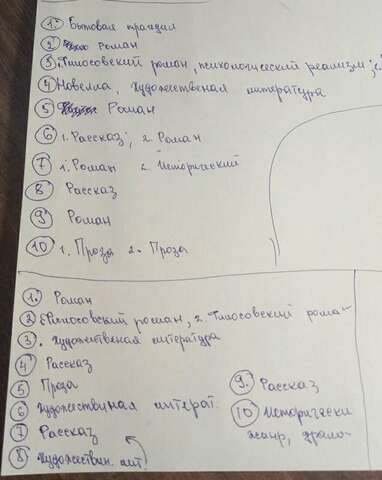 1. Бытовая трагдия
2. Роман
3. Филосовский роман, психологический реализм;
4 Новелла, художественая литература
5 Роман
6 1. Рассказ; 2. Роман
7 1. Роман 2. Исторический
8 Рассказ
9 Роман
10 1. Проза 2. Проза
1. Роман
2 1. Филосовский роман, 2. Филосовский рома-
3. художественая литература
4 Рассказ
5 Проза
6 художественая литерат.
7 Рассказ
8 художествин. лит.
9. Рассказ
10 Исторически
жанр, драма-